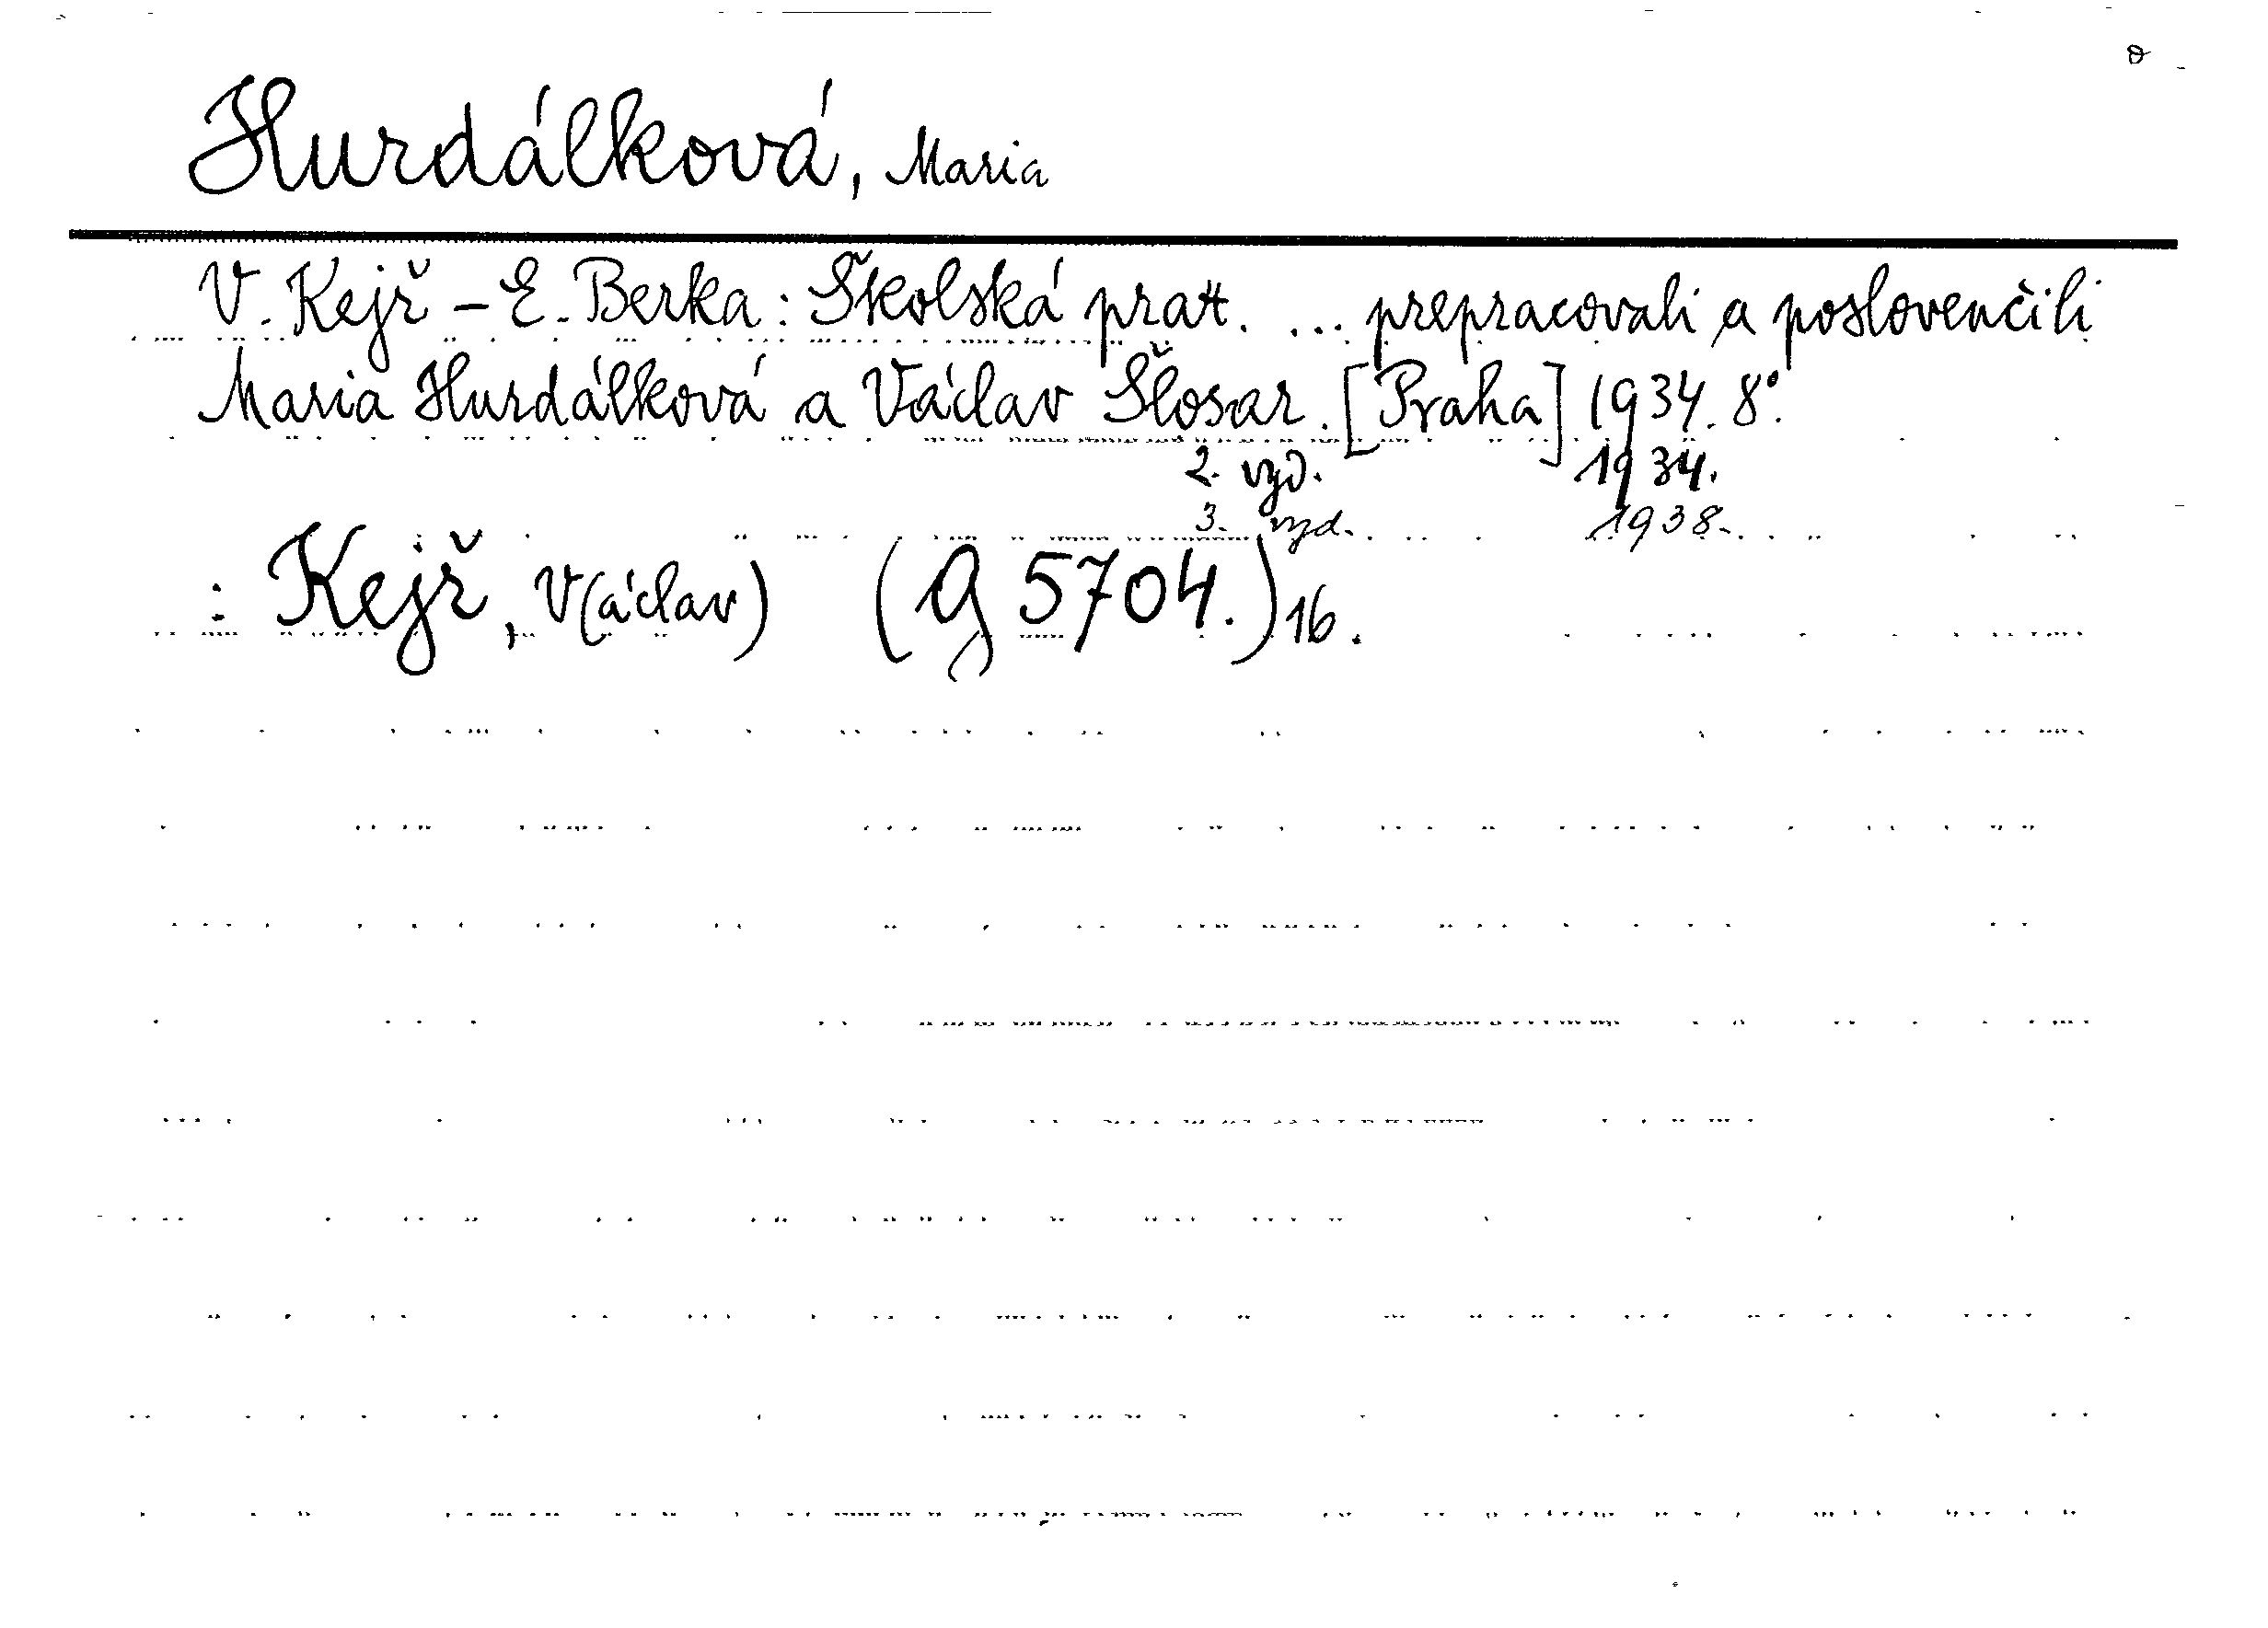 Hurdálková, Maria
V. Kejř - E. Berka: Školská pratt. ... prepracovali a poslovenčili
Maria Hurdálková a Václav Šlosar. [Praha] 1934. 8°.
2. vyd. 1934.
3. vyd. 1938.
: Kejř, V(áclav) (G 5704.) 16.